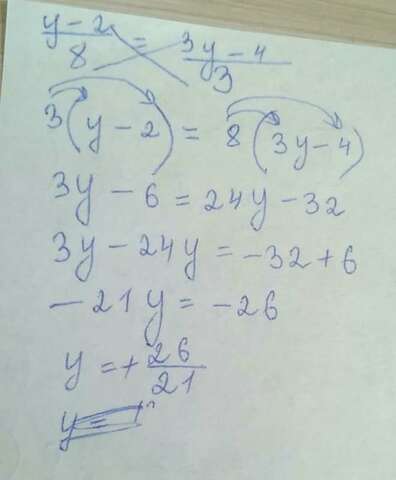 y-2/8 = 3y-4/3
3(y-2) = 8(3y-4)
3y-6=24y-32
3y-24y=-32+6
-21y=-26
y=+26/21